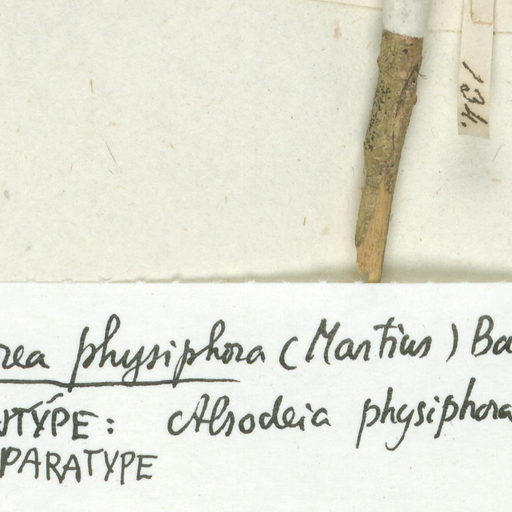 134.
rea physiphora (Martius) Ba
TYPE: Alsodeia physiphora
PARATYPE